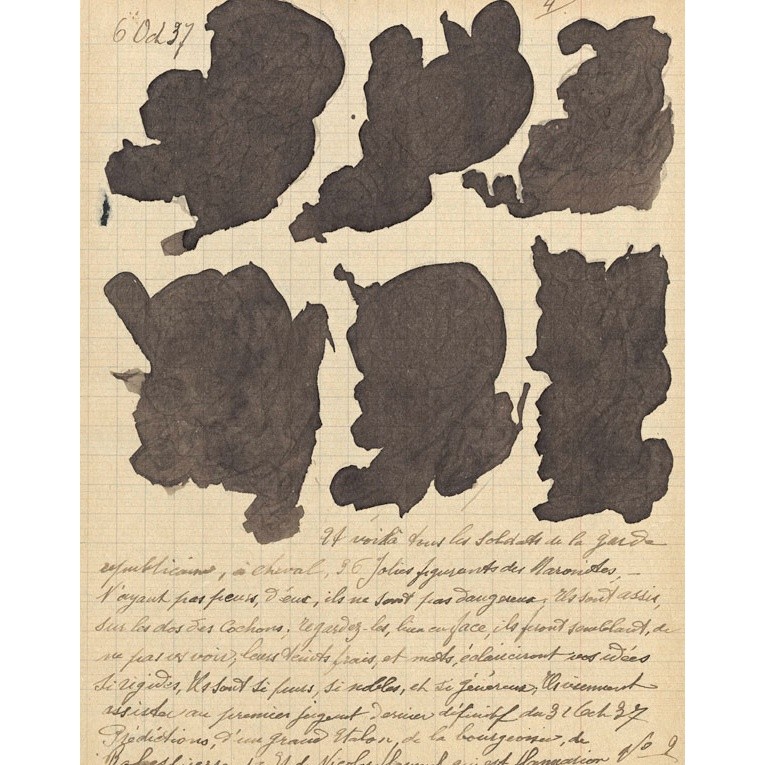 6 Oct 37
4
Et voilà tous les soldats de la garde
republicaine, à cheval, 26 Jolies figurants des
N'ayant pas peur, d'eux, ils ne sont pas dangereux, Ils sont assis,
sur les dos des cochons, regardez-les, bien en face, ils feront semblant, de
ne pas vs voir, leurs teints frais, et mats, éclairciront vos idées
si rigides, Ils sont si purs, si nobles, et si généreux, Ils viennent
au premier jugement dernier définitif du 31 Oct 37
Prédictions, d'un grand Etalon, de la bourgeoisie, de
Nicolas qui est